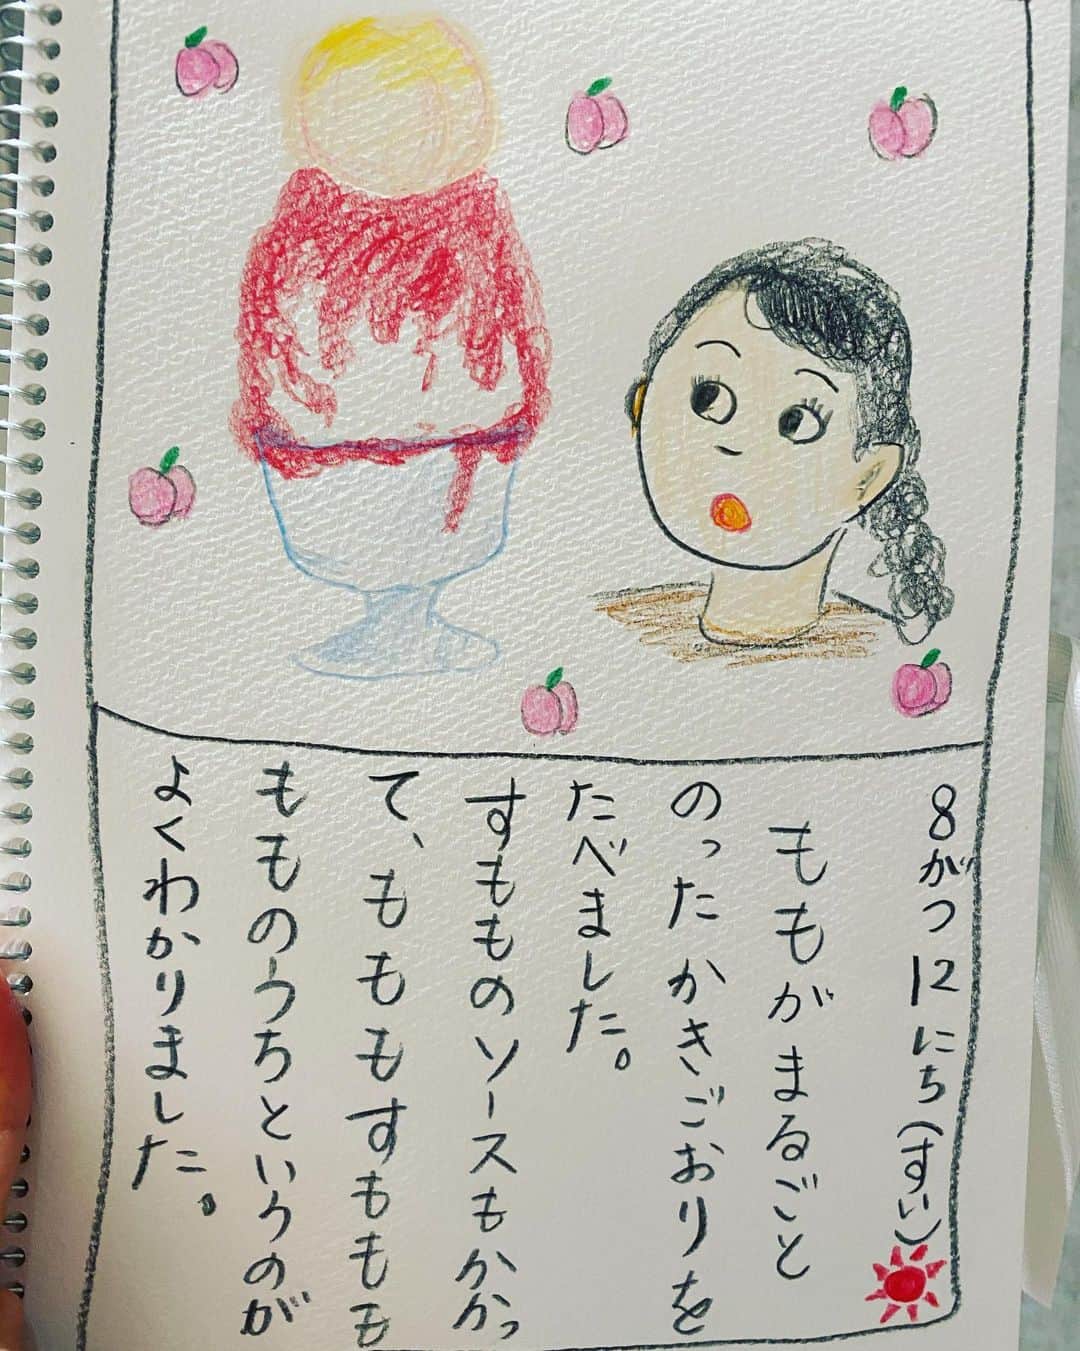 8がつ12にち(すい)
ももがまるごと
のったかきごおりを
たべました。
すもものソースもかかっ
て、ももももすももも
もものうちというのが
よくわかりました。